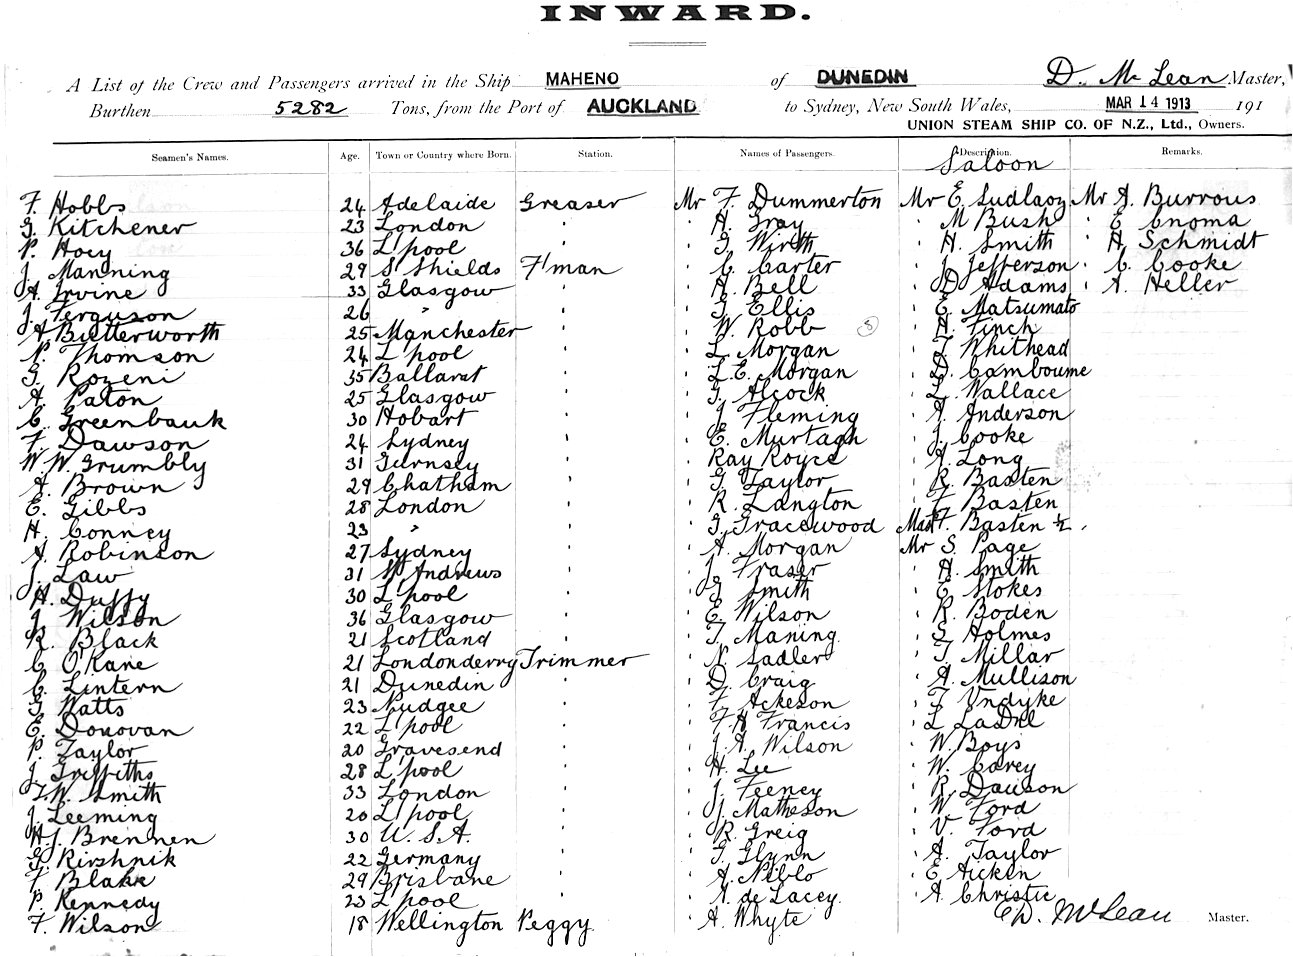 INWARD.
A List of the Crew and Passengers arrived in the Ship MAHENO of DUNEDIN D. McLean Master,
Burthen 5282 Tons, from the Port of AUCKLAND to Sydney, New South Wales, MAR 14 1913 191
UNION STEAM SHIP CO. OF N.Z., Ltd., Owners.
Seamen's Names. Age. Town or Country where Born. Station. Names of Passengers. Description. Remarks.
Saloon
F. Hobbs 24 Adelaide Greaser Mr F. Dummerton Mr E. Mr A. Burrous
G. Kitchener 23 London " " H. Gray " M Bush " E. Enoma
P. Hoey 36 L'pool " " G. Wirth " H. Smith " H. Schmidt
J. Manning 29 S Shields F'man " C. Carter " J. Jefferson " C. Cooke
A. Irvine 33 Glasgow " " H. Bell " D. Adams " A. Heller
J. Ferguson 26 " " " G. Ellis " E. Matsumato
A Butterworth 25 Manchester " " W. Robb " H. Finch
N. Thomson 24 L'pool " " L. Morgan " T. Whithead
G. Rozeni 35 Ballarat " " L. E. Morgan " D. Cambourne
A. Paton 25 Glasgow " " G. Alcock " L. Wallace
C. Greenbank 30 Hobart " " J. Fleming " A. Anderson
F. Dawson 24 Sydney " " E. Murtagh " J. Cooke
W. W. Grumbly 31 Gurnsey " Ray Royce " A. Long
A. Brown 29 Chatham " " G. Taylor " R. Basten
E. Gibbs 28 London " " R. Langton " F. Basten
H. Conney 23 " " " G. Gracewood Mast F. Basten ½
A. Robinson 27 Sydney " " A. Morgan Mr S. Page
J. Law 31 St Andrews " " J. Fraser " H. Smith
H. Duffy 30 L'pool " " G. Smith " E. Stokes
J. Wilson 36 Glasgow " " E. Wilson " R. Boden
R. Black 21 Scotland " " T. Maning " S. Holmes
C. O'Kane 21 Londonderry Trimmer " N. Sadler " T. Millar
C. Lintern 21 Dunedin " " D. Craig " A. Mullison
G. Watts 23 Nudgee " " F. Ackeson " T. Vndyke
E. Donovan 22 L'pool " " F. H. Francis " L.
P. Taylor 20 Gravesend " " J. A. Wilson " W. Boys
J. Griffiths 28 L'pool " " H. Lee " W. Carey
T. W. Smith 33 London " " J. Feeney " R. Dawson
J. Leeming 20 L'pool " " J. Matheson " W. Ford
H. J. Brennen 30 U. S. A. " " R. Greig " V. Ford
G. Kirshnik 22 Germany " " T. Glynn " A. Taylor
F. Blake 29 Brisbane " " A. Niblo " E. Aicken
P. Kennedy 23 L'pool " " A. de Lacey " A. Christie
F. Wilson 18 Wellington Peggy " A. Whyte
D. McLean Master.